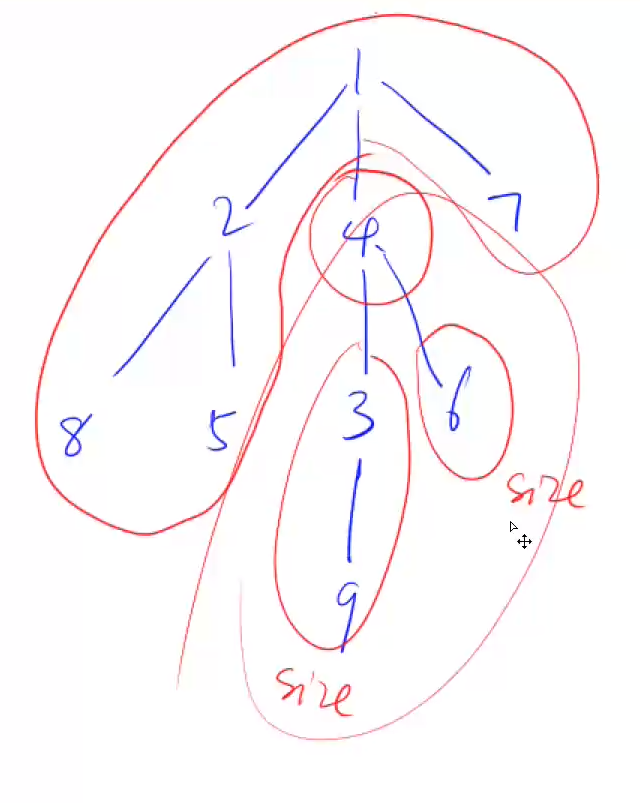 1
2 4 7
8 5 3 6
size
9
size